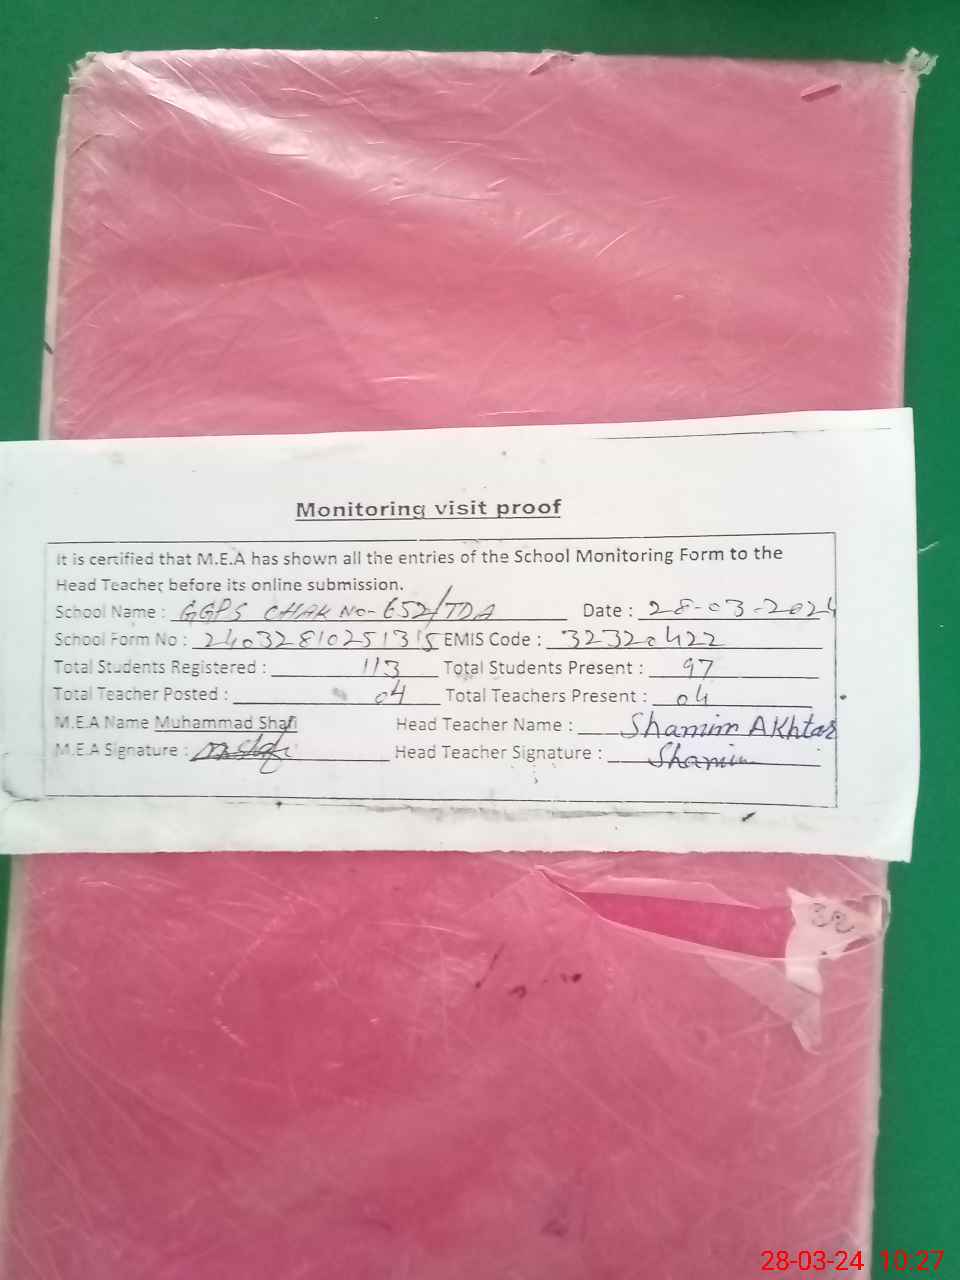 Monitoring visit proof
It is certified that M.E.A has shown all the entries of the School Monitoring Form to the
Head Teacher before its online submission.
School Name : GGPS CHAK No- 652/TDA Date : 28-03-2024
School Form No : 24032810251315 EMIS Code : 32320422
Total Students Registered : 113 Total Students Present : 97
Total Teacher Posted : 04 Total Teachers Present : 04
M.E.A Name Muhammad Shafi Head Teacher Name : Shamim Akhtar
M.E.A Signature : mshafi Head Teacher Signature : Shamim
28-03-24 10:27